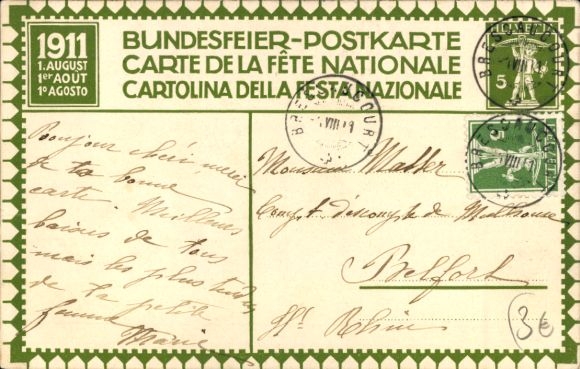 1911
1. AUGUST
1er AOÛT
1º AGOSTO
BUNDESFEIER-POSTKARTE
CARTE DE LA FÊTE NATIONALE
CARTOLINA DELLA FESTA NAZIONALE
5
Bonjour chéri, merci
de ta bonne
carte. Meilleurs
baisers de tous
mais les plus tendres
de ta petite
femme
Marie
Monsieur
Compt. d'escompte de Mulhouse
Belfort
Ht Rhin
3€